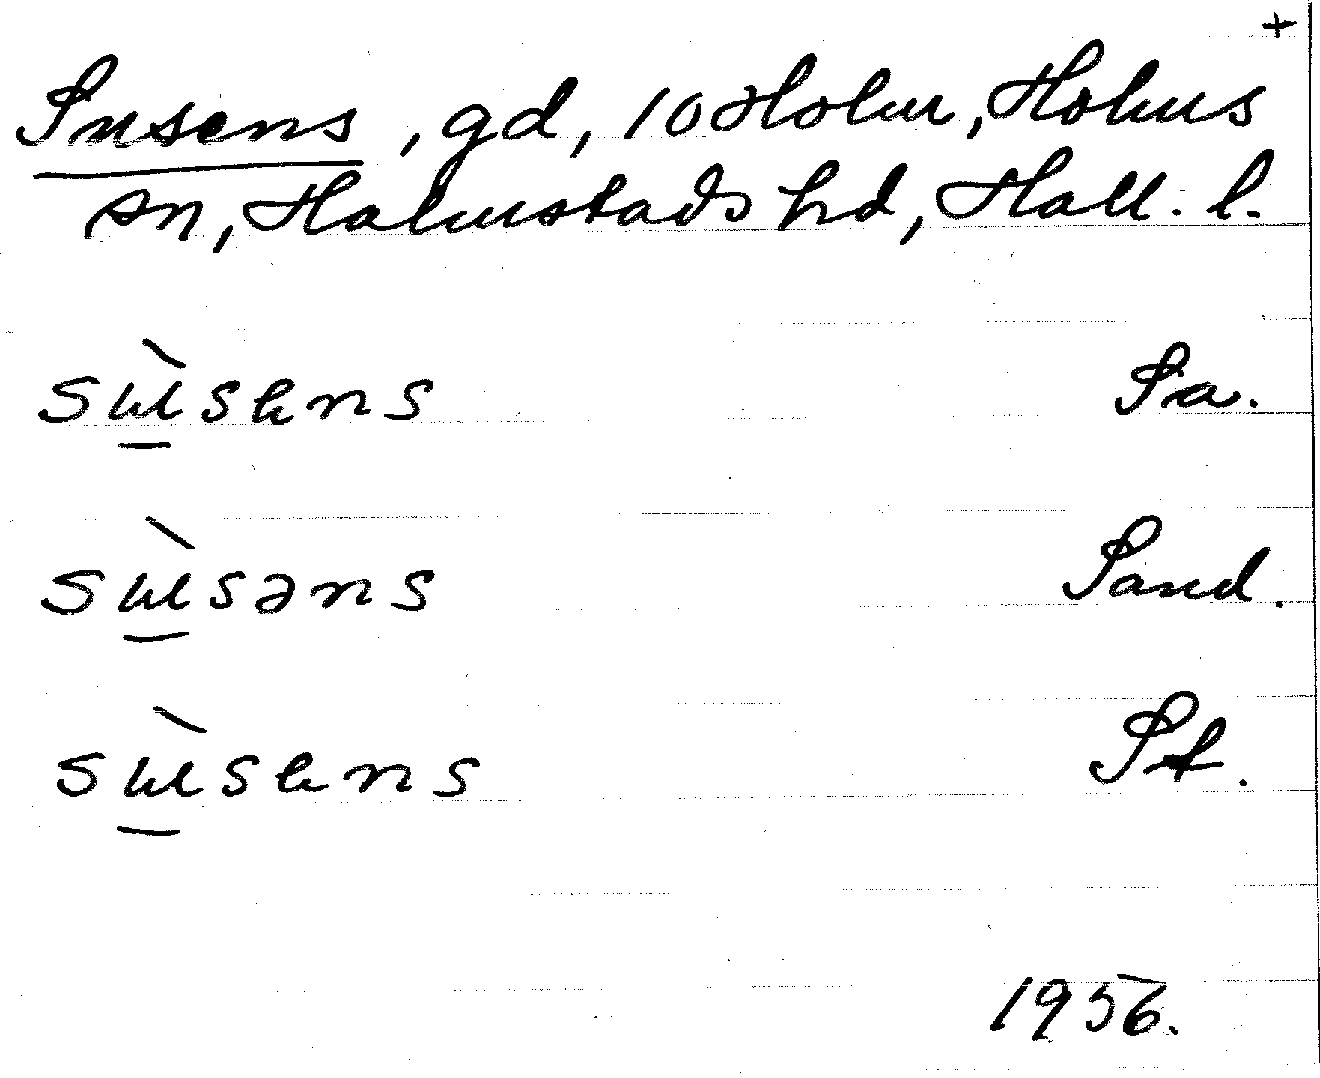 +
Susens, gd, 10 Holm, Holms
sn, Halmstads hd, Hall. l.
sùsens Sa.
sùsəns Sand.
sùsens St.
1956.